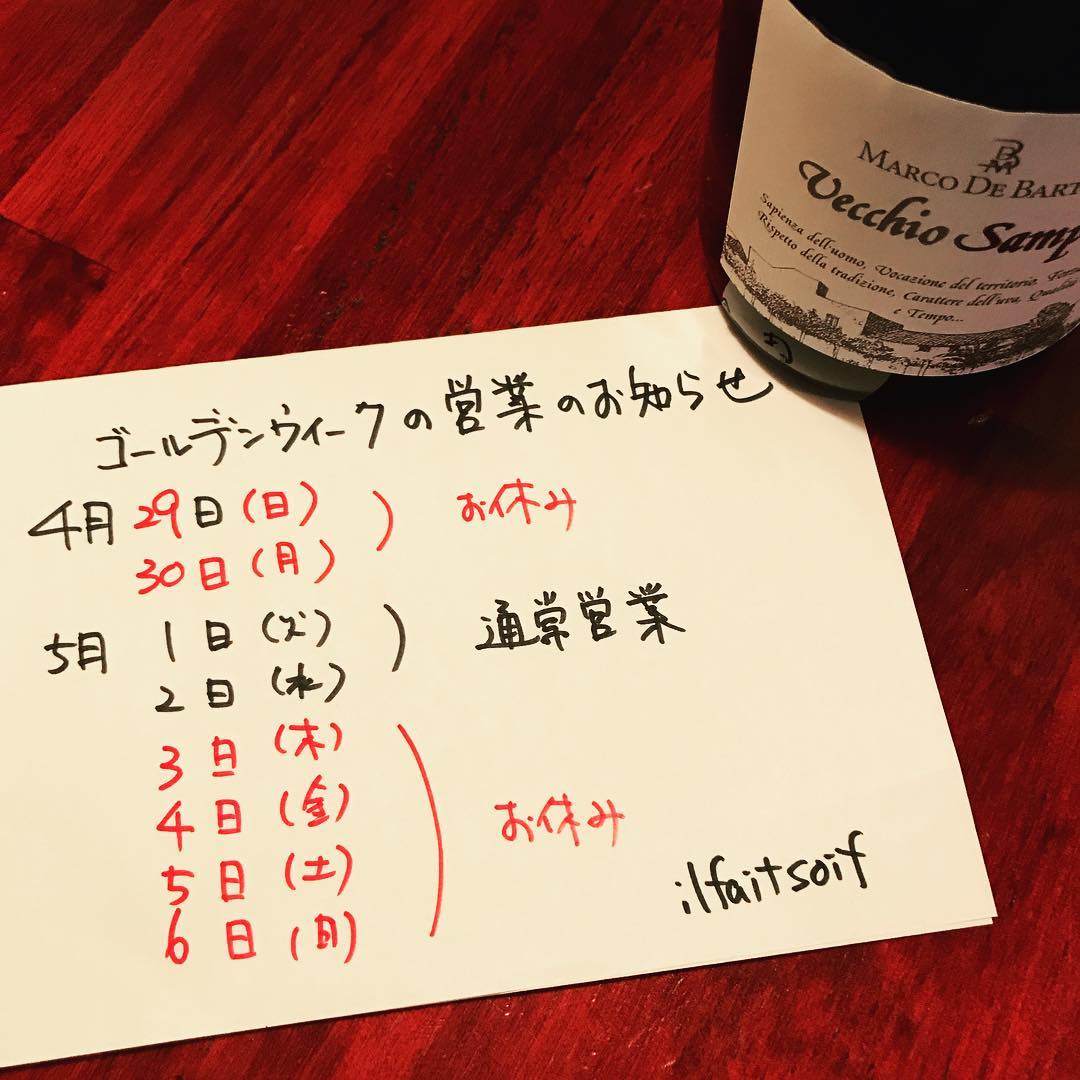 MARCO DE BART
Vecchio Samp
Sapienza dell'uomo, Vocazione del territorio,
Rispetto della tradizione, Carattere dell'uva,
e Tempo...
ゴールデンウィークの営業のお知らせ
4月 29日(日) お休み
30日(月)
5月 1日(火) 通常営業
2日(水)
3日(木)
4日(金) お休み
5日(土)
6日(日)
ilfaitsoif